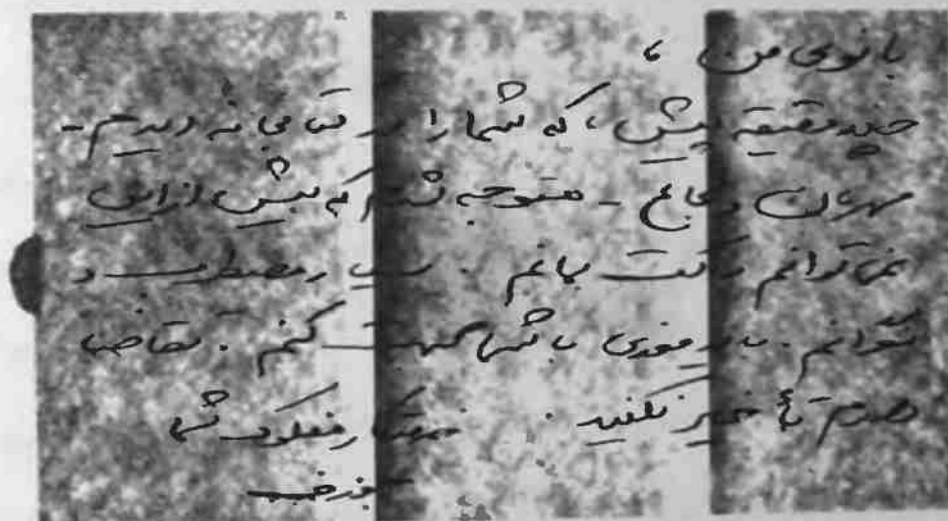 بانوی من ،
چند دقیقه پیش ، که شما را در کتابخانه دیدم -
مهربان و - متوجه شدم که بیش از این
نمی‌توانم ساکت بمانم . بسیار مضطرب و
نگرانم . باید فوری با شما صحبت کنم . تقاضا
دارم تأخیر نکنید . خدمتکار مفلوک شما